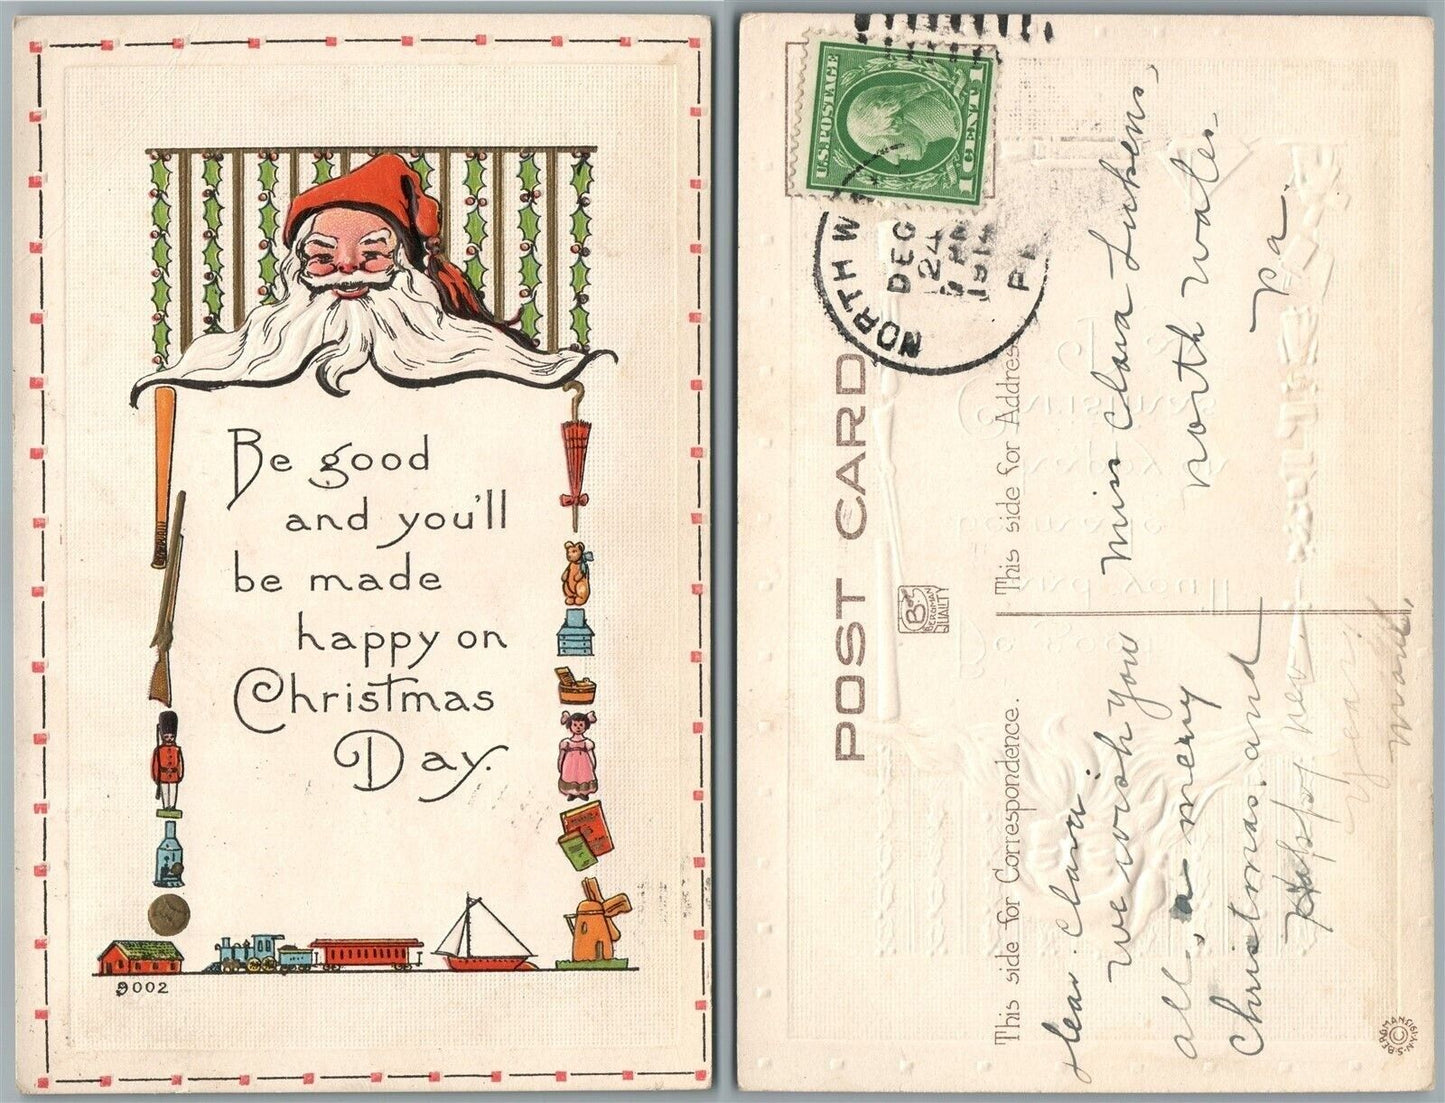 Be good
and you'll
be made
happy on
Christmas
Day.
9002
U.S. POSTAGE
1 CENT 1
NORTH W
DEC
24
1914
PA
POST CARD
This side for Correspondence.
This side for Address
BERGMAN
QUALITY
Dear Clara
we wish you
all a merry
Christmas and
Happy new
year
Miss Clara Lukens,
North Wales.
Pa.